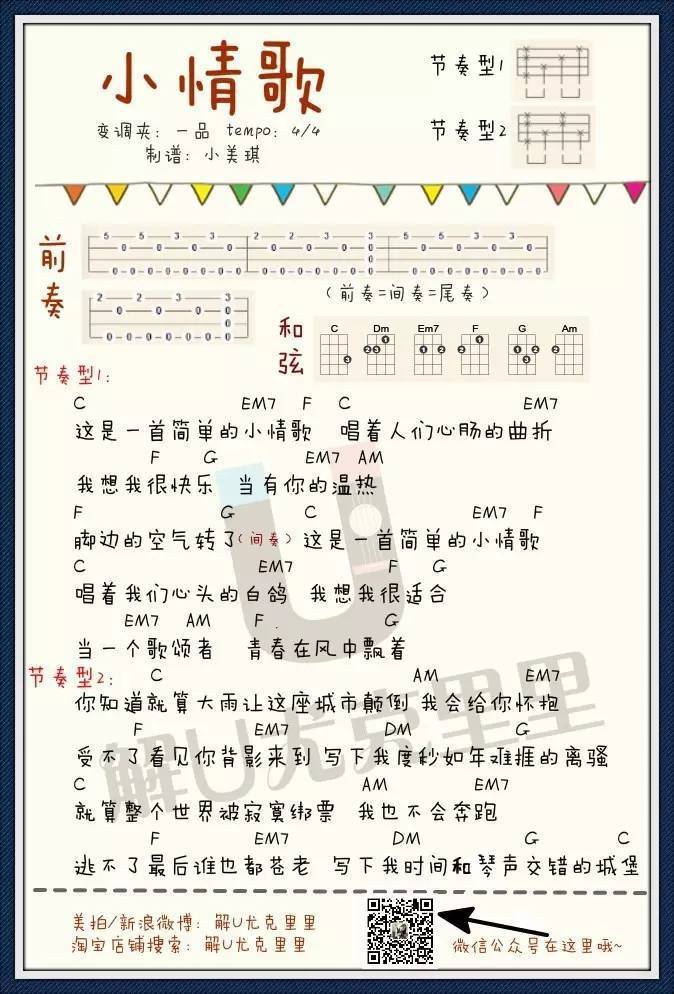 小情歌
节奏型1
节奏型2
变调夹：一品 tempo：4/4
制谱：小美琪
前奏
5 5 3 3 2 2 3 3 5 5 3 3
0 0 0 0 0 0 0 0 0 0
0
0 0 0 0 0 0 0 0 0 0 0 0
（前奏=间奏=尾奏）
2 2 3 3
0 0 0
0
0 0 0 0 0
和弦
C Dm Em7 F G Am
3 2 3 1 1 2 2 1 1 2 3 2
节奏型1：
C EM7 F C EM7
这是一首简单的小情歌 唱着人们心肠的曲折
F G EM7 AM
我想我很快乐 当有你的温热
F G C EM7 F
脚边的空气转了(间奏) 这是一首简单的小情歌
C EM7 F G
唱着我们心头的白鸽 我想我很适合
EM7 AM F G
当一个歌颂者 青春在风中飘着
节奏型2：
C AM EM7
你知道就算大雨让这座城市颠倒 我会给你怀抱
F EM7 DM G
受不了看见你背影来到 写下我度秒如年难捱的离骚
C AM EM7
就算整个世界被寂寞绑票 我也不会奔跑
F EM7 DM G C
逃不了最后谁也都苍老 写下我时间和琴声交错的城堡
解U尤克里里
美拍/新浪微博：解U尤克里里
淘宝店铺搜索：解U尤克里里
微信公众号在这里哦~